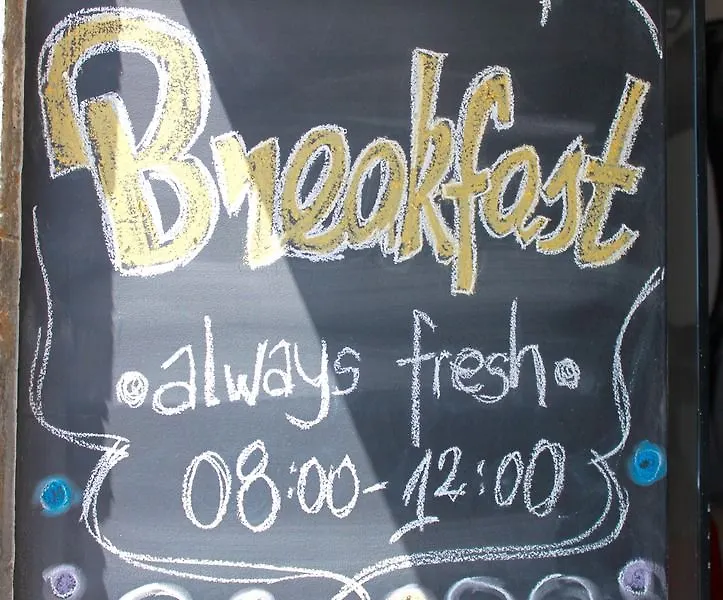 Breakfast
always fresh
08:00-12:00